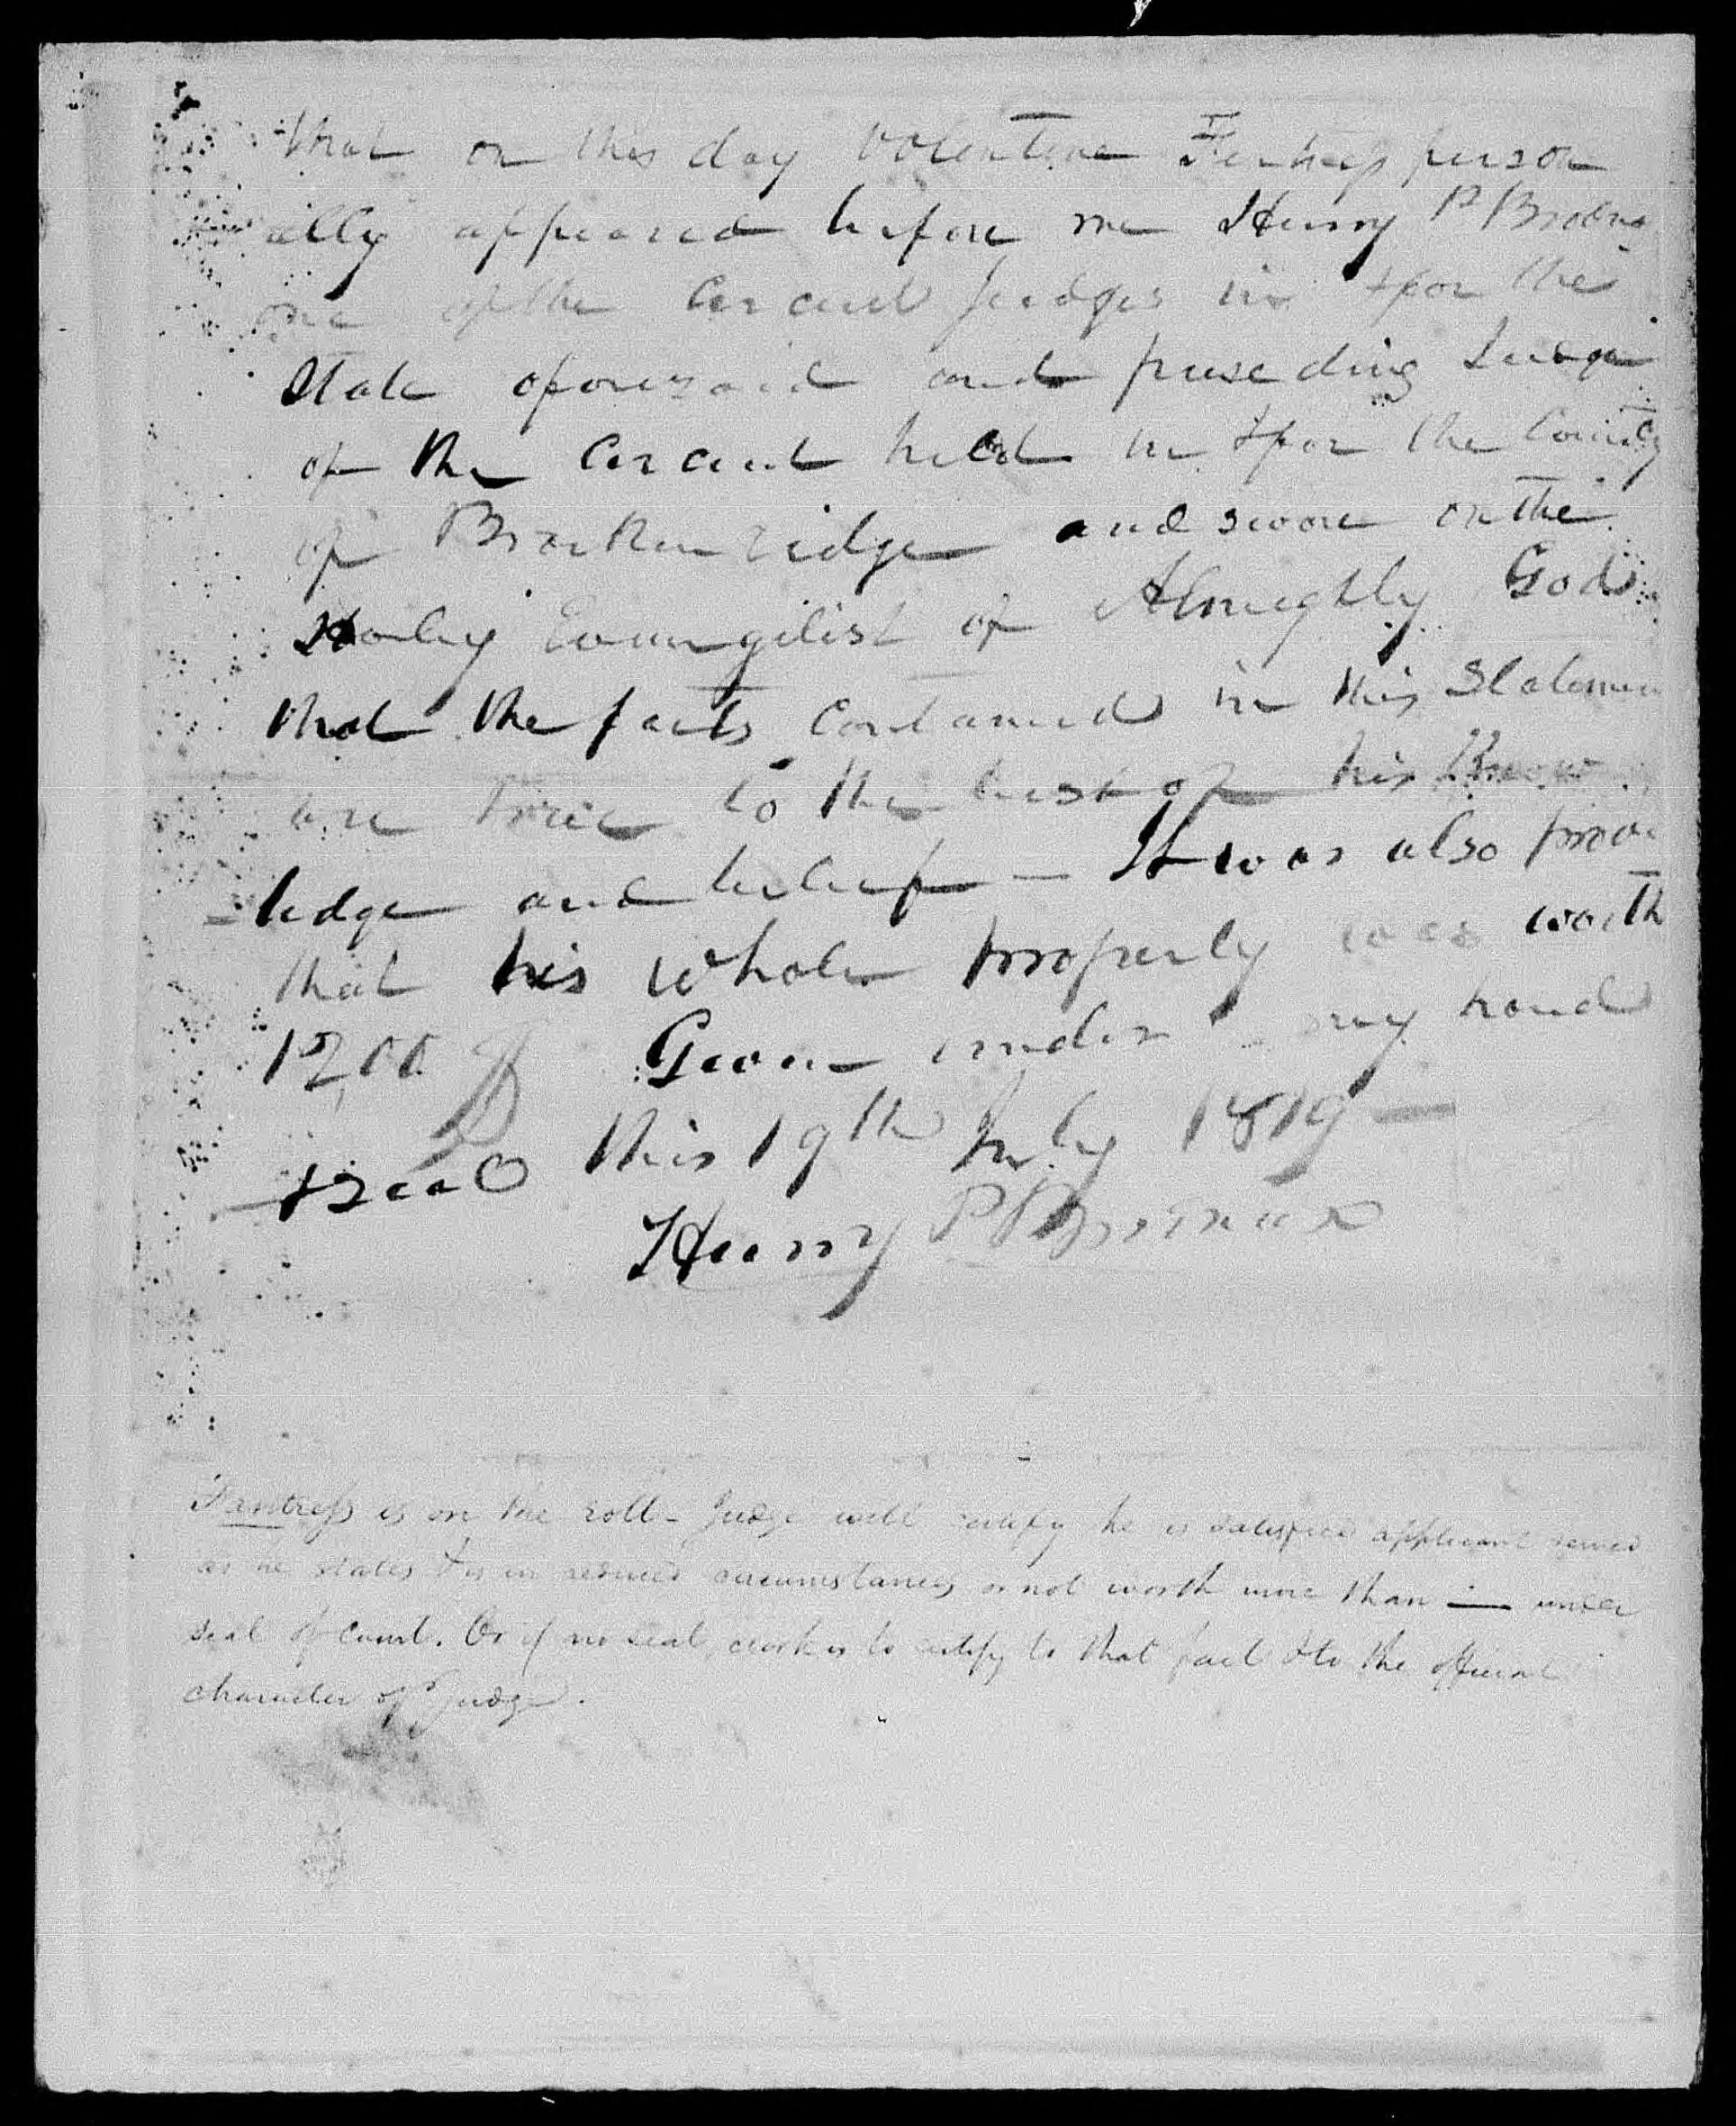 that on this day Volentine Fentress person
ally appeared before me Henry P Brodna
one of the Cercuit Judges in & for the
State aforesaid and preseding Judge
of the Cercuit held in & for the County
of Brackenridge and swore on the
Holey Evangilist of Almighty God
that the facts Contained in this Statemen
are True to the best of his Know
=ledge and beleif — It was also prove
that his whole property was worth
1200 $ Given under my hand
this 19th July 1819 —
Henry P Brodnax
Fantress is on the roll - Judge will certify he is satisfied applicant served
as he states & is in reduced circumstances or not worth more than — under
seal of Court. Or if no seal, clerk is to certify to that fact & to the official
character of Judge.